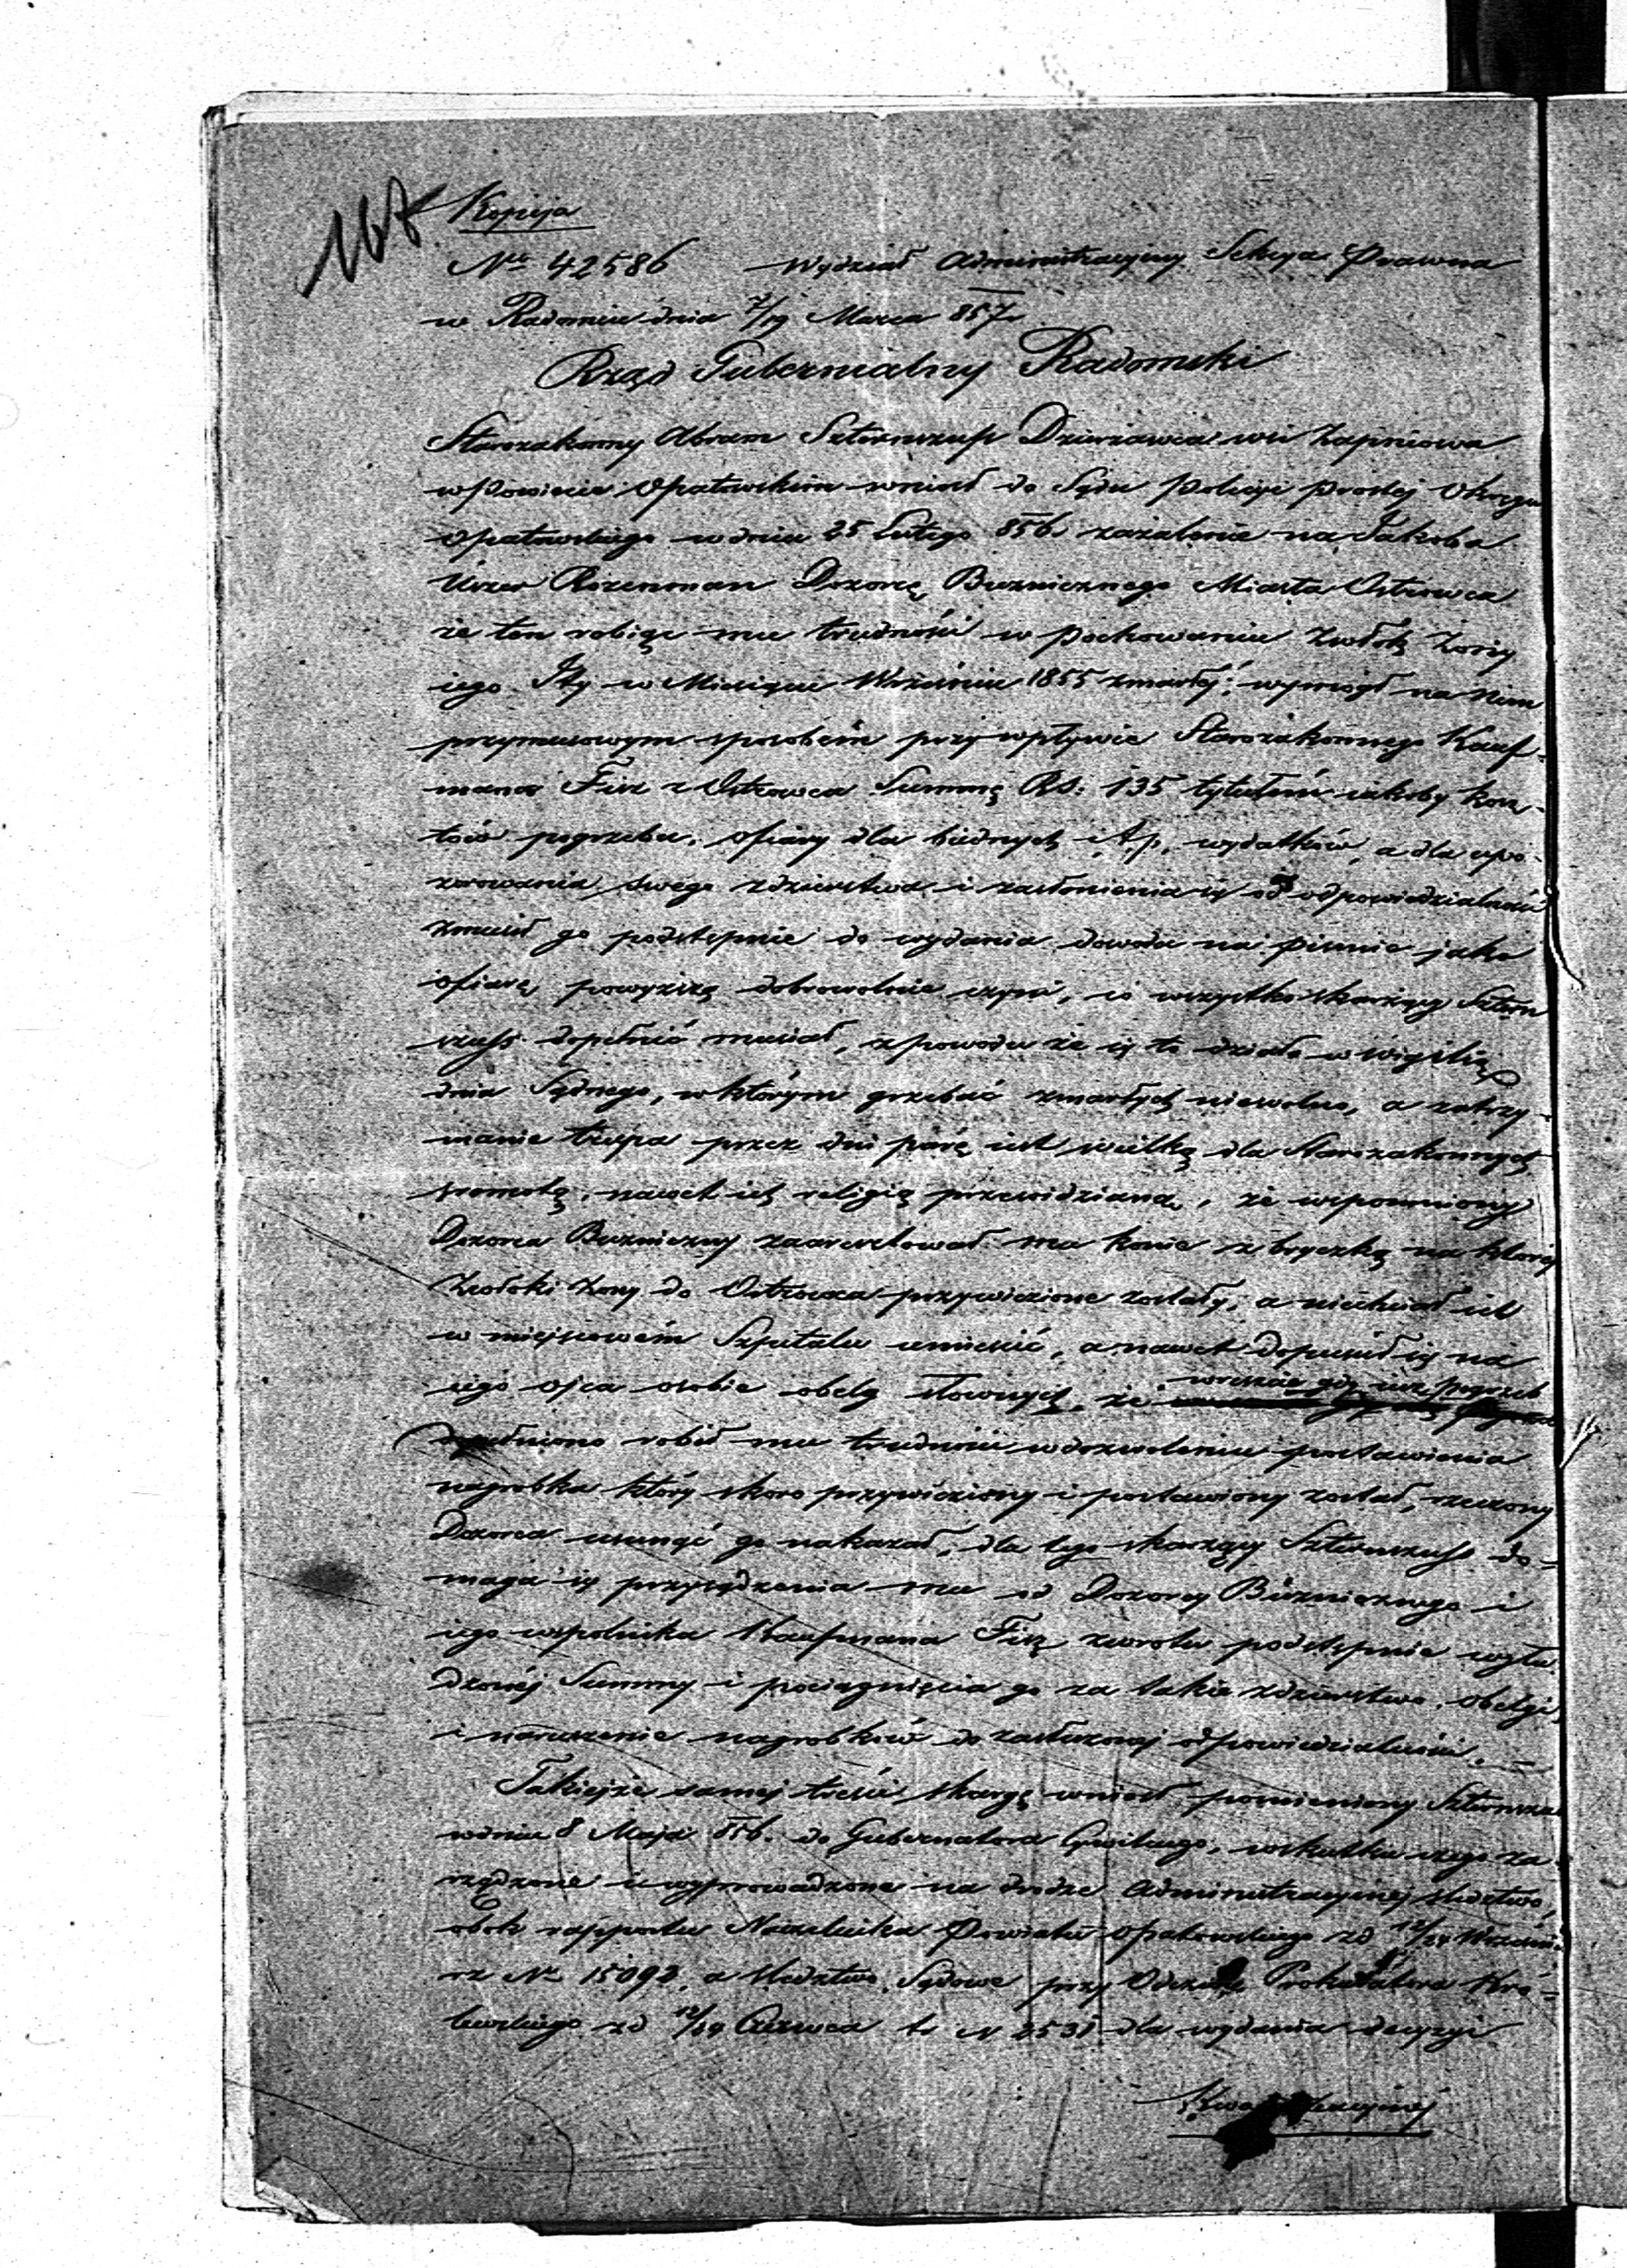 167
Kopija
No 42586 Wydział Administracyjny Sekcya Prawna
w Radomiu dnia 7/19 Marca 857
Rząd Gubernialny Radomski
Starozakonny Abram Szternszus Dzierżawca wsi
w Powiecie Opatowskim wniósł do Sądu Policyi Prostej Okręgu
Opatowskiego w dniu 25 Lutego 856 zażalenie na Jakoba
Rozenman Dozorcę Bużnicznego Miasta Ostrowca
że ten robiąc mu trudności w pochowaniu zwłok żony
iego Ity w Miesiącu Wrześniu 1855 zmarłej, wymógł na nim
przymusowym sposobem przy wpływie Starozakonnego Kauf-
mana Fisz z Ostrowca Summę Rs. 135 tytułem iakoby kosz-
tów pogrzebu, ofiary dla biednych i t.p. wydatków, a dla upo-
zorowania swego zdzierstwa i zasłonienia się od odpowiedzialności
zmusił go podstępnie do wydania dowodu na piśmie jako
ofiarę powyższą dobrowolnie czyni, co wszystko skarżący Sztern
szus dopełnić musiał, z powodu że się to działo w wigilią
dnia Sądnego, w którym grzebać zmarłych niewolno, a zatrzy-
manie trupa przez dni parę iest wielką dla Starozakonnych
sromotą, nawet ich religią przewidzianą, że wspomniony
Dozorca Bużniczny zaaresztował mu konie z bryczką na której
zwłoki żony do Ostrowca przywiezione zostały, a niechciał ich
w miejscowém Szpitalu umieścić, a nawet dopuścił się na
iego ojca osobie obelg słownych, że wreszcie gdy iuż pogrzeb
dopełniono robił mu trudności w dozwoleniu postawienia
nagrobka który skoro przywieziony i postawiony został, rzeczony
Dozorca usunąć go nakazał, dla tego skarżący Szternszus do-
maga się przysądzenia mu od Dozorcy Bużnicznego i
iego wspólnika Kaufmana Fisz zwrotu podstępnie wyłu
dzonéj Summy i pociągnięcia go za takie zdzierstwo, obelgi
i naruszenie nagrobków do zasłużonej odpowiedzialności.
Takiejże samej treści skargę wniósł pomieniony Szternszus
w dniu 8 Maja 856 do Gubernatora Cywilnego, wskutku czego za
rządzone i wyprowadzone na drodze Administracyjnej śledztwo,
obok rapportu Naczelnika Powiatu Opatowskiego z d 12/24 Września
rz No 15092, a śledztwo Sądowe przy Odezwie Prokuratora Kró-
lewskiego z d 12/24 Czerwca No 2531 dla wydania decyzyi